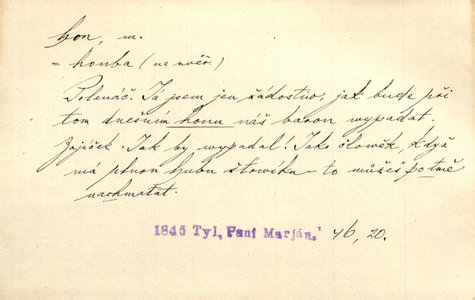 hon, m.
= honba (na zvěř.)
Polenáč. Já jsem jen žádostiv, jak bude při
tom dnešním honu náš baron vypadat.
Zajíček. Jak by vypadal! Jako člověk, když
má plnou hubu šťovíka – to můžeš potmě
nachmatat.
1845 Tyl, Paní Marján. 46, 20.